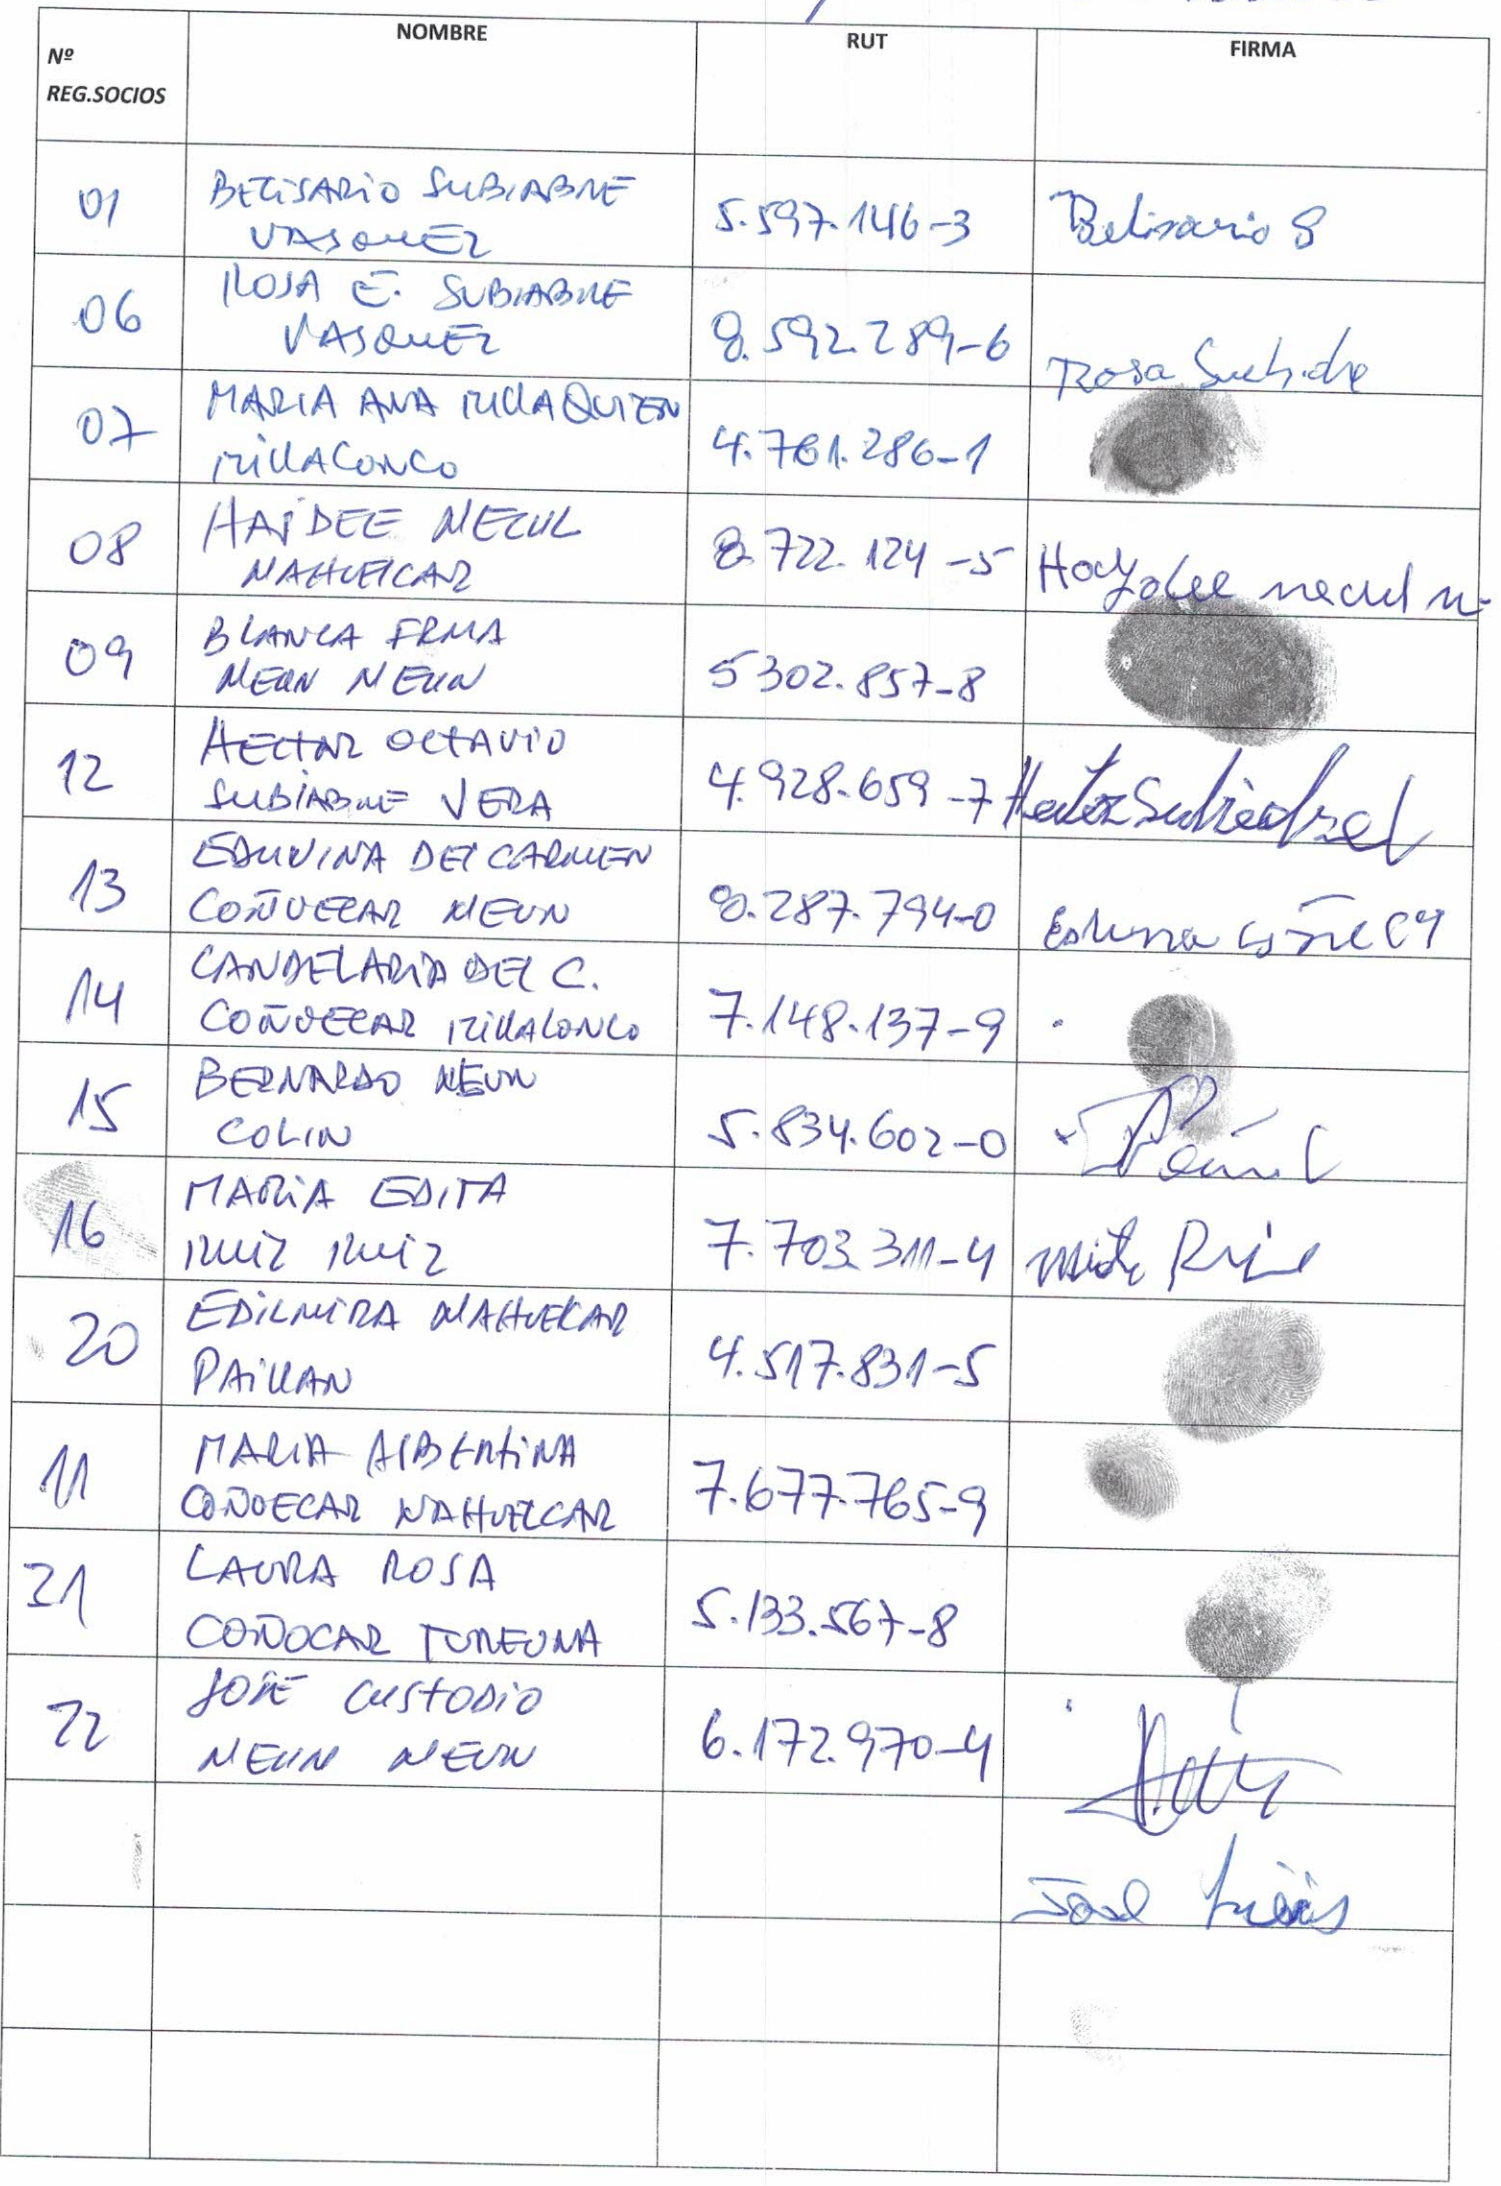 Nº
REG.SOCIOS
NOMBRE
RUT
FIRMA
01
BELISARIO SUBIABRE
VASQUEZ
5.597.146-3
Belisario S
06
ROSA E. SUBIABRE
VASQUEZ
8.592.289-6
Rosa
07
MARIA ANA MILLAQUIEN
MILLALONCO
4.761.286-1
08
HAIDEE NECUL
NAHUELCAR
8.722.124-5
Haydee necul n.
09
BLANCA IRMA
NEUN NEUN
5302.857-8
12
HECTOR OCTAVIO
SUBIABRE VERA
4.928.659-7
Hector Subiabre
13
EDUVINA DEL CARMEN
COÑUECAR NEUN
8.287.794-0
14
CANDELARIA DEL C.
COÑUECAR MILLALONCO
7.148.137-9
15
BERNARDO NEUN
COLIN
5.834.602-0
16
MARIA EDITA
RUIZ RUIZ
7.703.311-4
20
EDILMIRA NAHUELCAR
PAILLAN
4.517.831-5
11
MARIA ALBERTINA
COÑOECAR NAHUELCAR
7.677.765-9
21
LAURA ROSA
COÑOCAR
5.133.567-8
22
JOSE CUSTODIO
NEUN NEUN
6.172.970-4
José